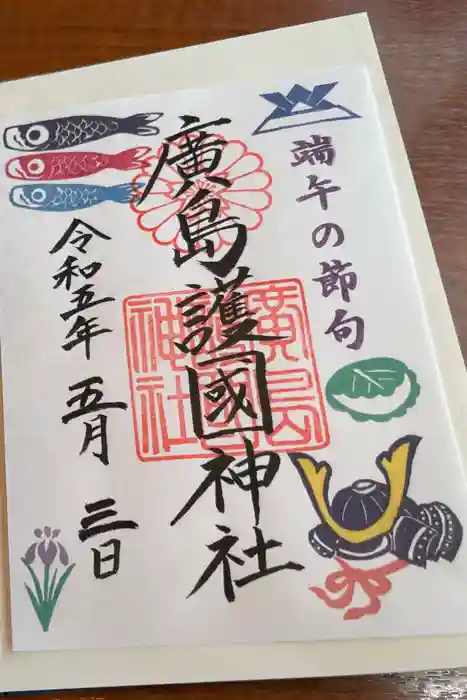 端午の節句
廣島護國神社
廣島
護國
神社
令和五年 五月 三日